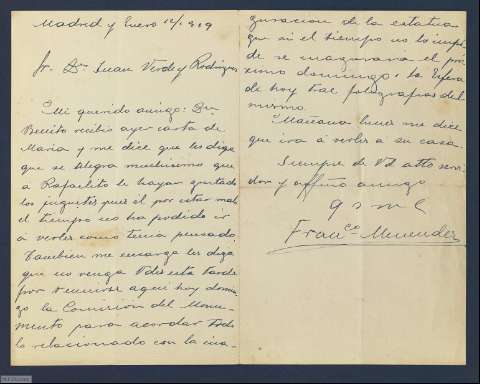 Madrid y Enero 12/919
Sr. Dn. Juan Verde y Rodríguez
Mi querido amigo: Dn.
Benito recibió ayer carta de
Maria y me dice que les diga
que se alegra muchisimo que
á Rafaelito le hayan gustado
los juguetes pues él por estar mal
el tiempo no ha podido ir
á verles como tenia pensado.
Tambien me encarga les diga
que no venga Vdes esta tarde
por reunirse aqui hoy domin-
go la Comisión del Monu-
mento para acordar todo
lo relacionado con la inau-
guración de la estatua
que si el tiempo no lo impi-
de se inaugurara el pró-
ximo domingo, la Esfera
de hoy trae fotografias del
mismo.
Mañana lunes me dice
que irá á verles a su casa.
Siempre de Vd atto servi-
dor y affmo amigo
q s m e
Franco. Menendez